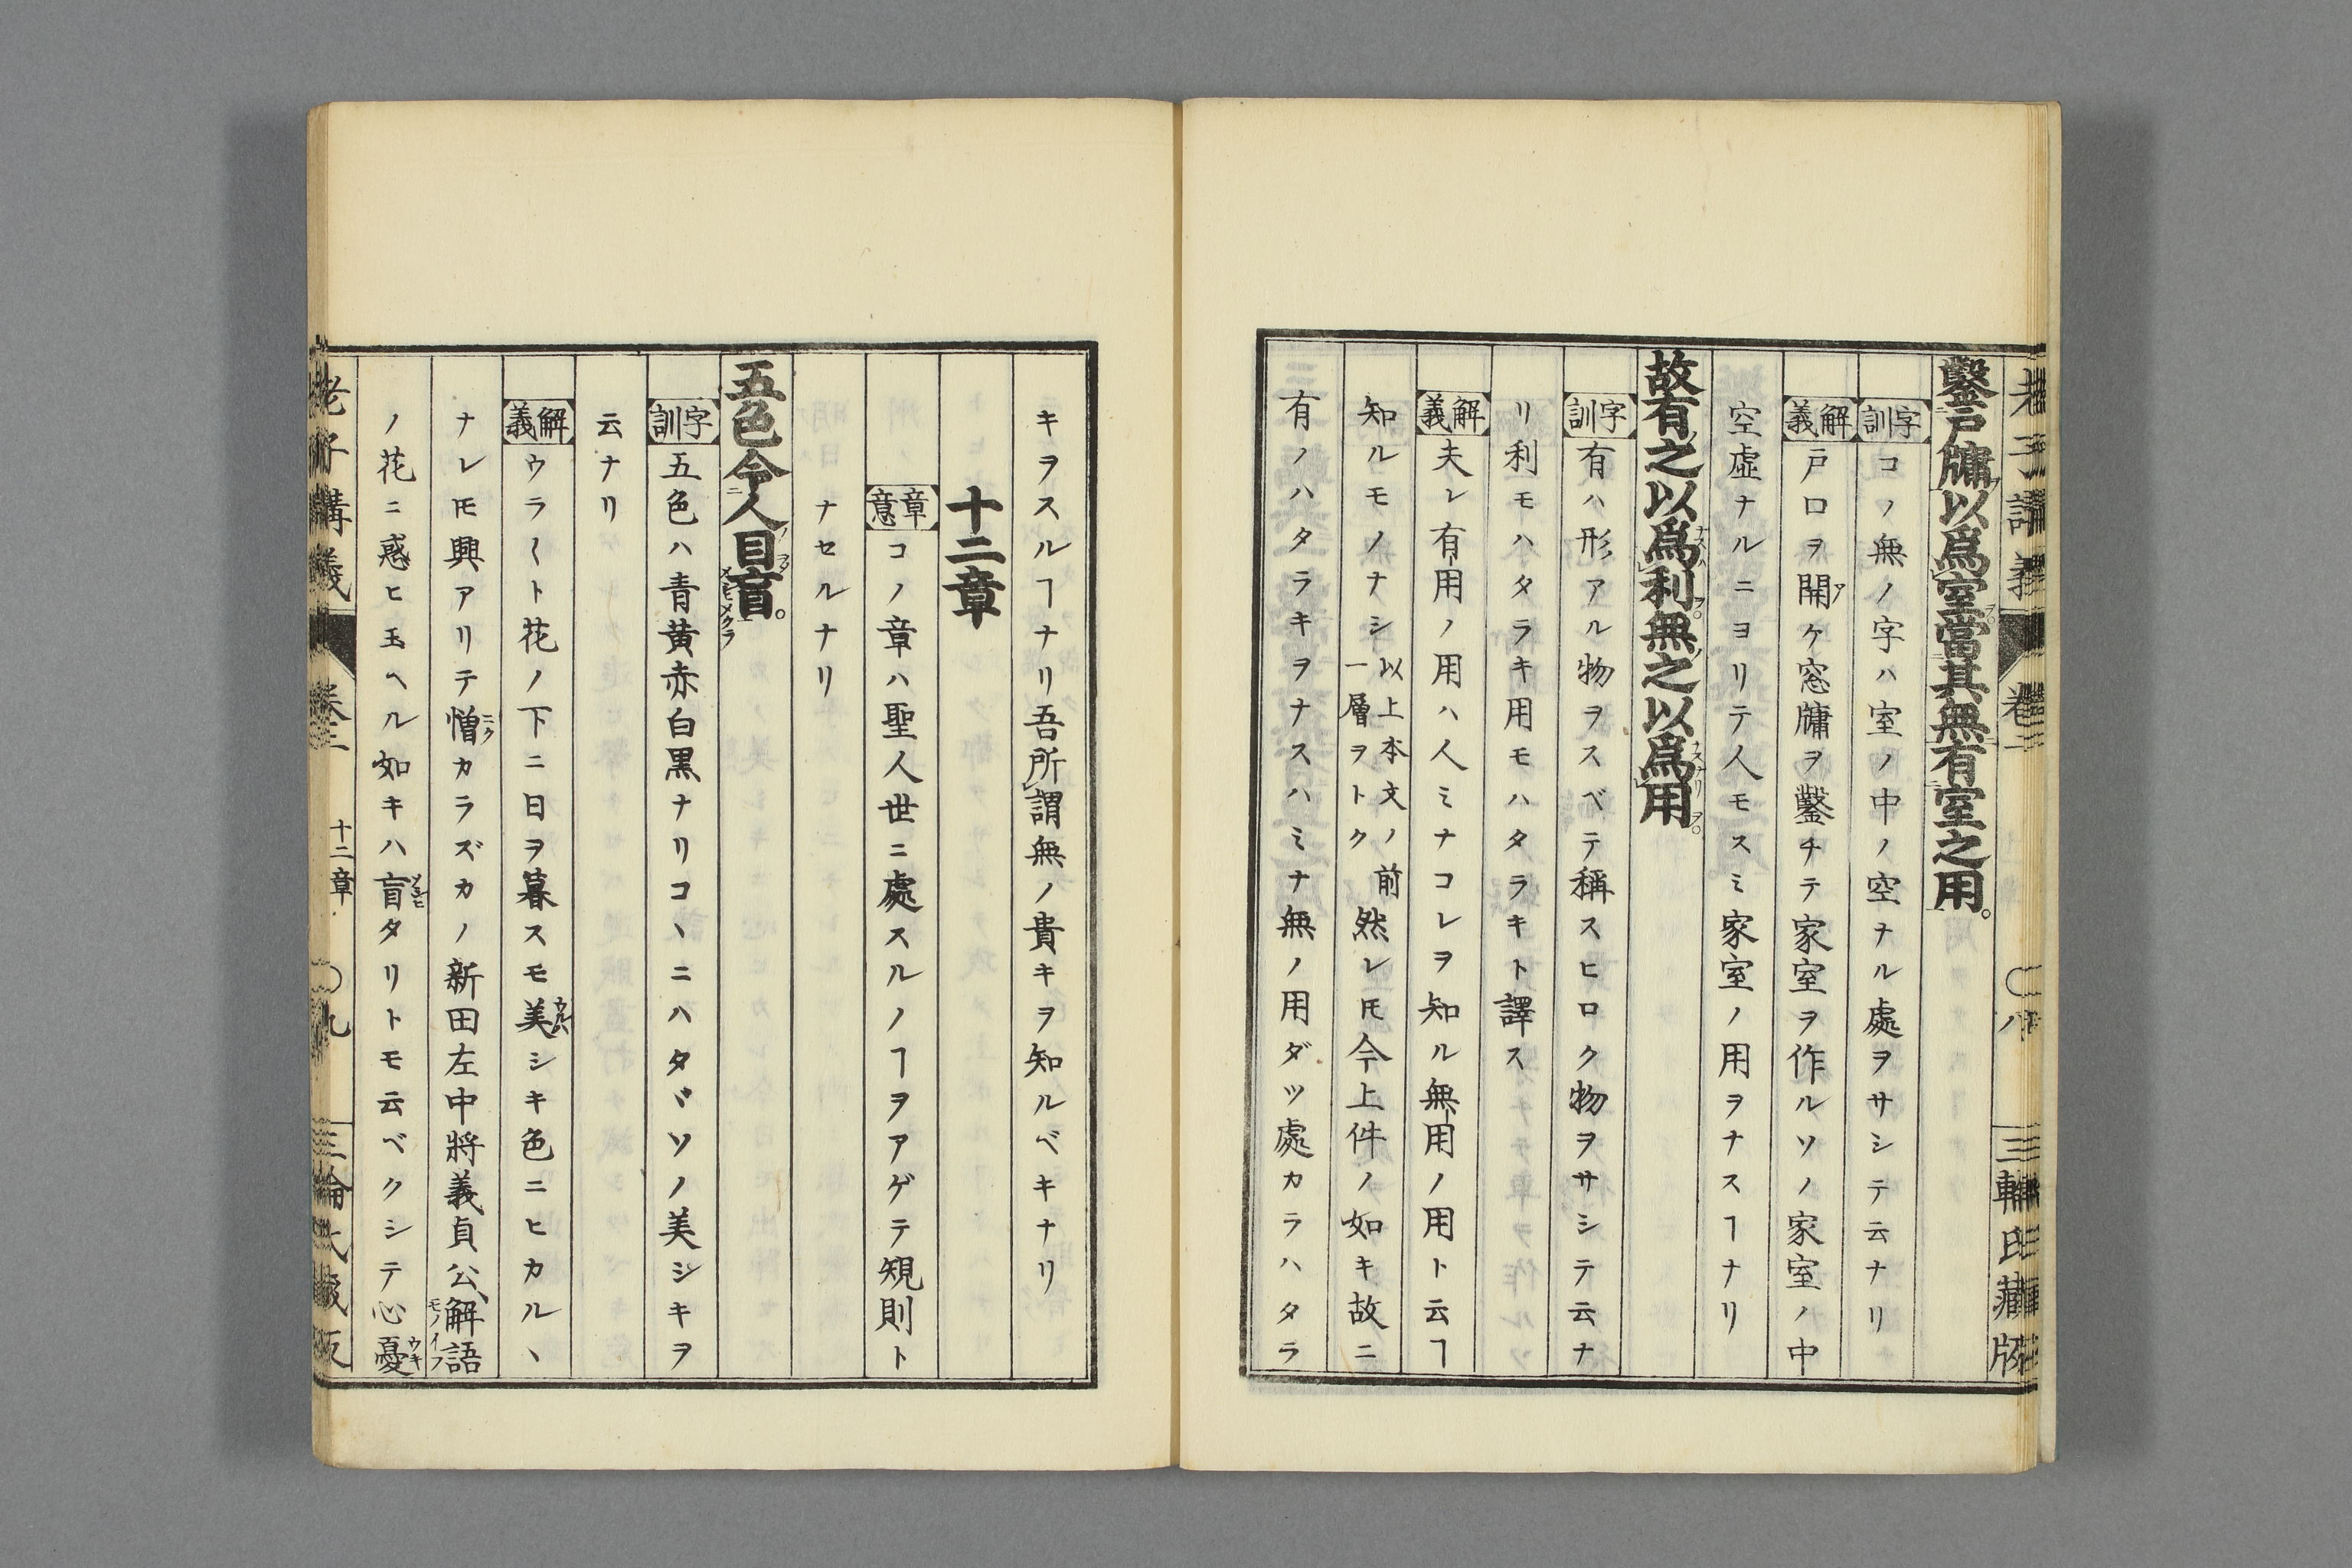 鑿戸牖以爲室當其無有室之用。
字訓 コノ無ノ字ハ室ノ中ノ空ナル處ヲサシテ云ナリ
解義 戸口ヲ開ケ窓牖ヲ鑿チテ家室ヲ作ルソノ家室ノ中
空虛ナルニヨリテ人モスミ家室ノ用ヲナスヿナリ
故有之以爲利無之以爲用
字訓 有ハ形アル物ヲスベテ稱スヒロク物ヲサシテ云ナ
リ利モハタラキ用モハタラキト譯ス
解義 夫レ有用ノ用ハ人ミナコレヲ知ル無用ノ用ト云ヿ
知ルモノナシ以上本文ノ前一層ヲトク然レ𪜈今上件ノ如キ故ニ
有ノハタラキヲナスハミナ無ノ用ダツ處カラハタラ
キヲスルヿナリ吾所謂無ノ貴キヲ知ルベキナリ
十二章
章意 コノ章ハ聖人世ニ處スルノヿヲアゲテ規則ト
ナセルナリ
五色令人目盲。
字訓 五色ハ青黄赤白黒ナリコヽニハタヾソノ美シキヲ
云ナリ
解義 ウラ〱ト花ノ下ニ日ヲ暮スモ美シキ色ニヒカルヽ
ナレ𪜈興アリテ憎カラズカノ新田左中將義貞公解語
ノ花ニ惑ヒ玉ヘル如キハ盲タリトモ云ベクシテ心憂
老子講義 卷二 十二章 〇九 三輪氏藏版